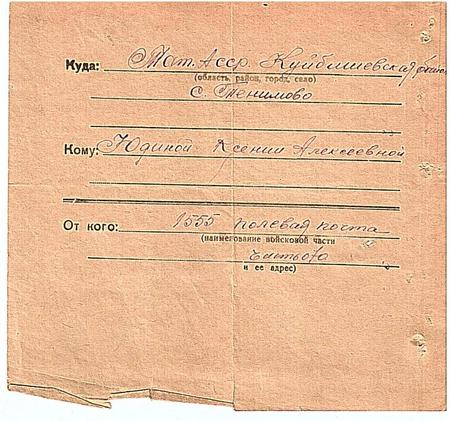 Куда: Тат. Асср. Куйбышевская
(область, район, город, село)
с. Тенишово
Кому: Юдиной Ксении Алексеевной
От кого: 1555 полевая почта
(наименование войсковой части
и ее адрес)